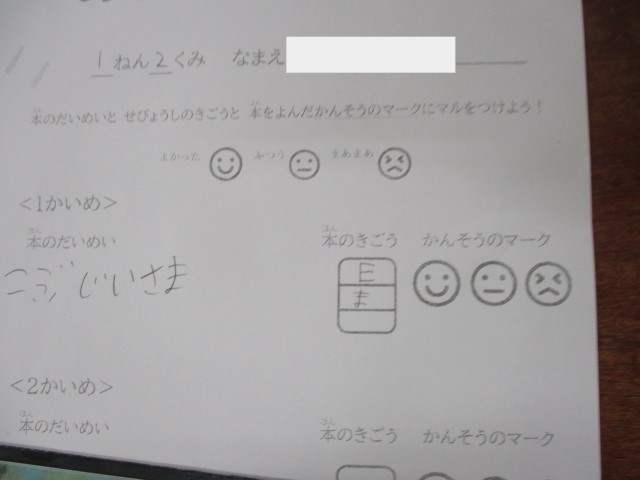 1ねん2くみ なまえ
本のだいめいと せびょうしのきごうと 本をよんだかんそうのマークにマルをつけよう!
よかった ふつう まあまあ
<1かいめ>
本のだいめい 本のきごう かんそうのマーク
こぶじいさま E
ま
<2かいめ>
本のだいめい 本のきごう かんそうのマーク